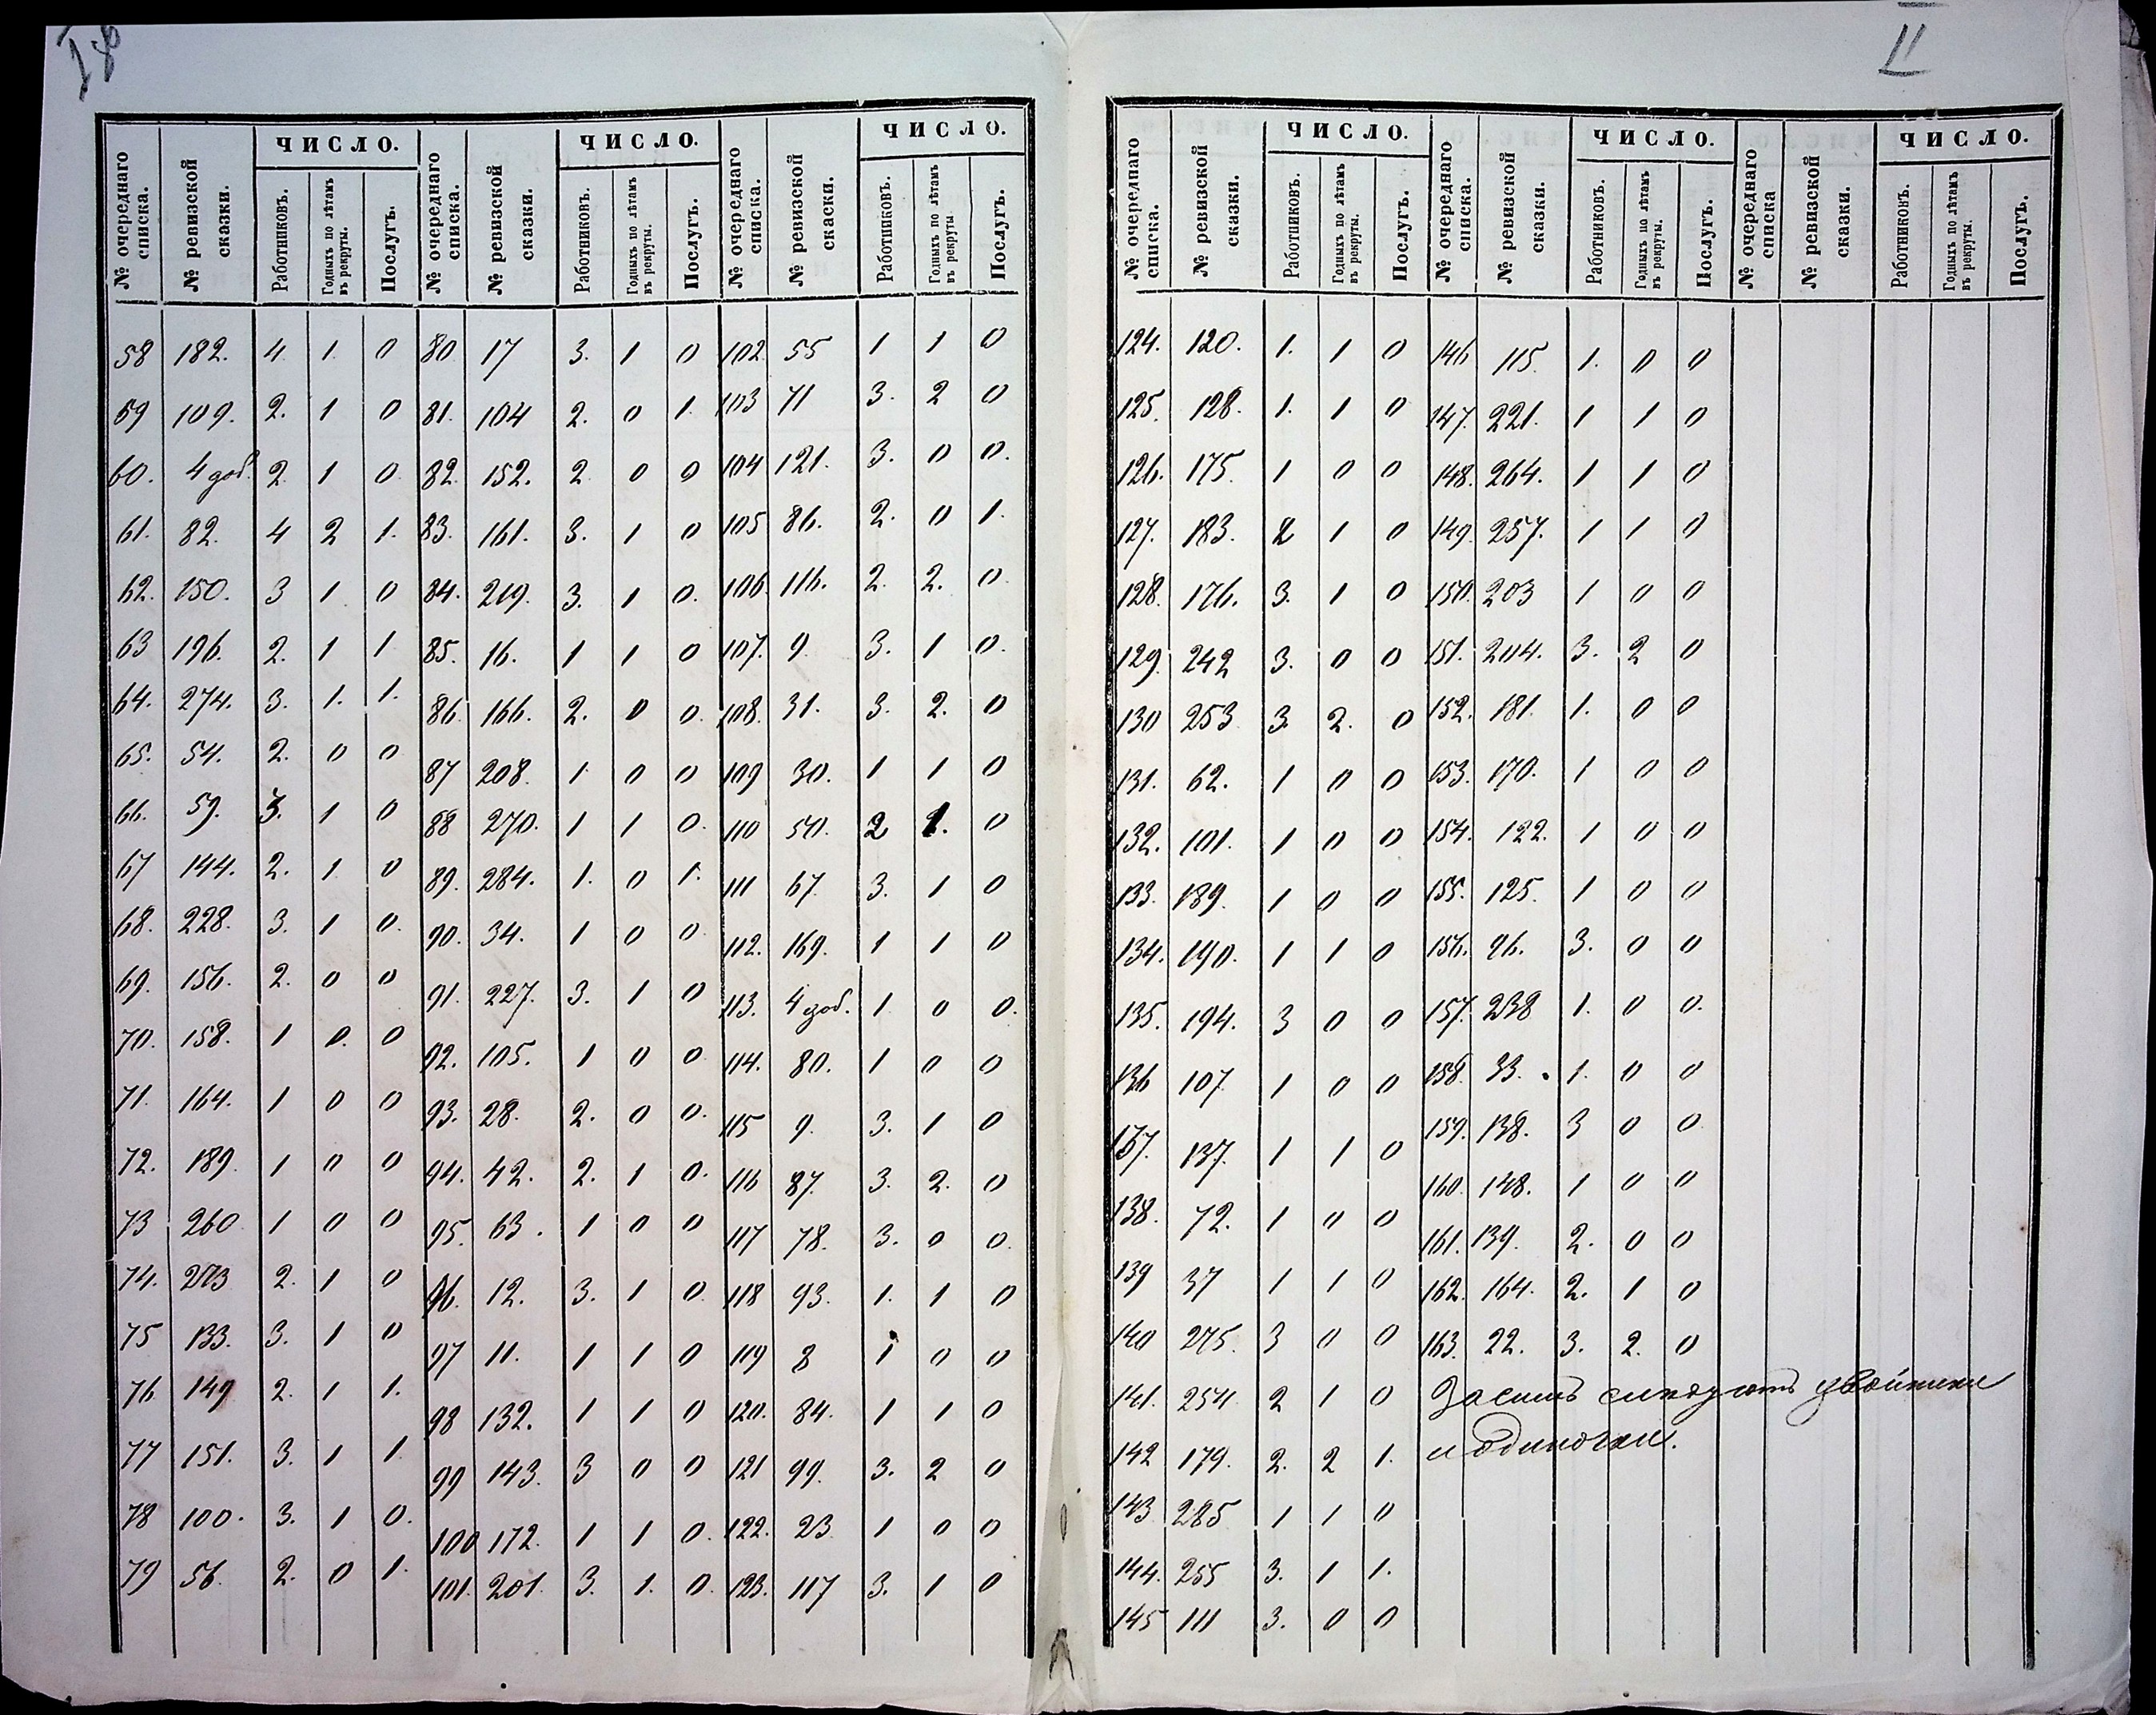 I 8
II
ЧИСЛО. ЧИСЛО. ЧИСЛО.
№ очереднаго списка. № ревизской сказки. Работниковъ. Годныхъ по лѣтамъ въ рекруты. Послугъ. № очереднаго списка. № ревизской сказки. Работниковъ. Годныхъ по лѣтамъ въ рекруты. Послугъ. № очереднаго списка. № ревизской скаски. Работниковъ. Годныхъ по лѣтамъ въ рекруты Послугъ.
58 182. 4. 1. 0 80 17 3. 1 0 102. 55 1 1 0
59 109. 2. 1 0 81. 104 2. 0 1. 103 71 3. 2 0
60. 4 доб. 2. 1 0 82. 152. 2 0 0 104 121. 3. 0 0.
61. 82. 4 2 1. 83. 161. 3. 1 0 105 86. 2. 0 1.
62. 150. 3 1 0 84. 219. 3. 1 0. 106. 116. 2. 2. 0
63 196. 2. 1 1 85. 16. 1 1 0 107. 9. 3. 1 0.
64. 274. 3. 1. 1. 86. 166. 2. 0 0. 108. 31. 3. 2. 0
65. 54. 2. 0 0 87 208. 1 0 0 109 30. 1 1 0
66. 59. 3. 1 0 88 270. 1 1 0. 110 50. 2 1. 0
67 144. 2. 1. 0 89. 284. 1. 0 1. 111 67. 3. 1 0
68. 228. 3. 1 0. 90. 34. 1 0 0 112. 169. 1 1 0
69. 156. 2. 0 0 91. 227. 3. 1 0 113. 4 доб. 1 0 0.
70. 158. 1 0. 0 92. 105. 1 0 0 114. 80. 1 0 0
71. 164. 1 0 0 93. 28. 2. 0 0. 115 9. 3. 1 0
72. 189. 1 0 0 94. 42. 2. 1 0. 116 87. 3. 2. 0
73 260 1 0 0 95. 63. 1 0 0 117 78. 3. 0 0.
74. 273 2. 1 0 96. 12. 3. 1 0. 118 93. 1. 1 0
75 133. 3. 1 0 97 11. 1 1 0 119 8 1 0 0
76 149 2. 1 1. 98 132. 1 1 0 120. 84. 1 1 0
77 151. 3. 1 1. 99 143. 3 0 0 121 99. 3. 2 0
78 100. 3. 1 0. 100 172. 1 1 0. 122. 23 1 0 0
79 56. 2. 0 1. 101. 201. 3. 1. 0. 123. 117 3. 1 0
ЧИСЛО. ЧИСЛО. ЧИСЛО.
№ очереднаго списка. № ревизской сказки. Работниковъ. Годныхъ по лѣтамъ въ рекруты. Послугъ. № очереднаго списка. № ревизской сказки. Работниковъ. Годныхъ по лѣтамъ въ рекруты. Послугъ. № очереднаго списка № ревизской сказки. Работниковъ. Годныхъ по лѣтамъ въ рекруты. Послугъ.
124. 120. 1. 1 0 146 115. 1. 0 0
125. 128. 1. 1 0 147. 221. 1 1 0
126. 175. 1 0 0 148. 264. 1 1 0
127. 183. 2 1 0 149. 257. 1 1 0
128. 176. 3. 1 0 150. 203 1 0 0
129. 242 3. 0 0 151. 204. 3. 2 0
130 253 3. 2. 0 152. 181. 1. 0 0
131. 62. 1 0 0 153. 170. 1 0 0
132. 101. 1 0 0 154. 122. 1 0 0
133. 189. 1 0 0 155. 125. 1 0 0
134. 190. 1 1 0 156. 96. 3. 0 0
135. 194. 3 0 0 157. 238 1. 0 0.
136 107 1 0 0 158. 33. 1. 0 0
137. 137. 1 1 0 159. 138. 3 0 0
138. 72. 1 0 0 160. 148. 1 0 0
139 37 1 1 0 161. 139. 2. 0 0
140 275. 3 0 0 162. 164. 2. 1 0
141. 254 2 1 0 163. 22. 3. 2. 0
142 179. 2. 2 1. Засимъ слѣдуютъ двойники
143 285 1 1 0 и одиночки.
144. 255 3. 1 1.
145 111 3. 0 0